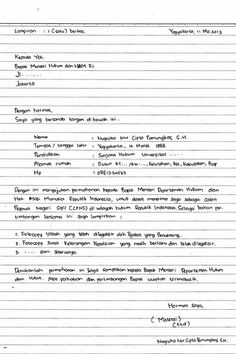 Lampiran : 1 (satu) berkas.
Yogyakarta, 11 Mei 2013
Kepada Yth.
Bapak Menteri Hukum dan HAM RI
Jl. ......
Jakarta
Dengan hormat,
Saya yang bertanda tangan di bawah ini :
Nama : Nugroho Nur Cipto Pamungkas, S.H
Tempat / tanggal lahir : Yogyakarta, 12 Maret 1988
Pendidikan : Sarjana Hukum Universitas ....
Alamat rumah : Dusun RT.../RW..., Kelurahan, Kec, Kabupaten, Prop
Hp : 0881234567
Dengan ini mengajukan permohonan kepada Bapak Menteri Departemen Hukum dan
Hak Asasi Manusia Republik Indonesia, untuk dapat menerima saya sebagai Calon
Pegawai Negeri Sipil (CPNS) di wilayah hukum Republik Indonesia. Sebagai bahan per-
timbangan bersama ini saya lampirkan :
1. Fotocopy Ijazah yang telah dilegalisir oleh Pejabat yang berwenang.
2. Fotocopy Surat Keterangan Kepolisian yang masih berlaku dan telah dilegalisir.
3. .... dan seterusnya.
Demikianlah permohonan ini saya sampaikan kepada Bapak Menteri Departemen Hukum
dan HAM. Atas perhatian dan pertimbangan Bapak ucapkan terimakasih.
Hormat saya,
( Materai )
(ttd)
Nugroho Nur Cipto Pamungkas S.H.